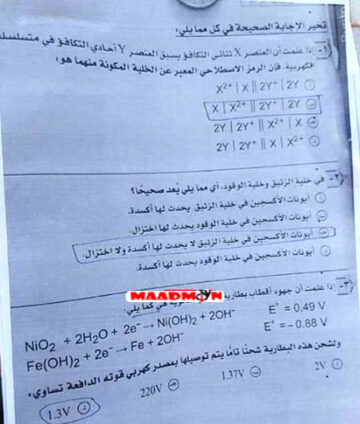 تخير الإجابة الصحيحة في كل مما يلي:
١- إذا علمت أن العنصر X ثنائي التكافؤ يسبق العنصر Y أحادي التكافؤ في متسلسلة
الكهربية. فإن الرمز الاصطلاحي المعبر عن الخلية المكونة منهما هو:
X²⁺ | X || 2Y⁺ | 2Y
X | X²⁺ || 2Y⁺ | 2Y
2Y | 2Y⁺ || X²⁺ | X
2Y | 2Y⁺ || X | X²⁺
٢- في خلية الزئبق وخلية الوقود، أي مما يلي يُعد صحيحًا؟
أيونات الأكسجين في خلية الزئبق يحدث لها أكسدة.
أيونات الأكسجين في خلية الوقود يحدث لها اختزال.
أيونات الأكسجين في خلية الزئبق لا يحدث لها أكسدة ولا اختزال.
أيونات الأكسجين في خلية الوقود يحدث لها أكسدة.
٣- إذا علمت أن جهود أقطاب بطارية كما يلي:
MAADMOYN
NiO₂ + 2H₂O + 2e⁻ → Ni(OH)₂ + 2OH⁻ E° = 0.49 V
Fe(OH)₂ + 2e⁻ → Fe + 2OH⁻ E° = - 0.88 V
ولشحن هذه البطارية شحنًا تامًا يتم توصيلها بمصدر كهربي قوته الدافعة تساوي:
2V
1.37V
220V
1.3V